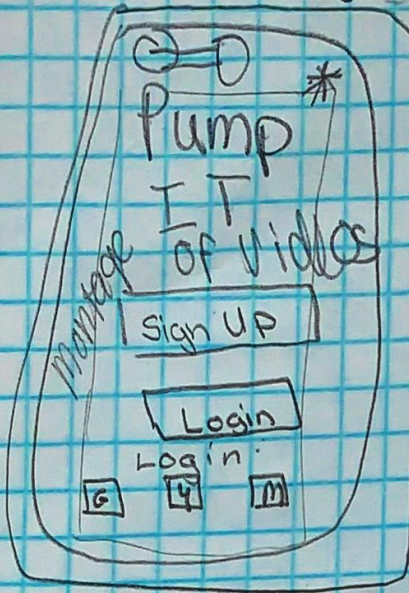 Pump
IT
montage of videos
Sign UP
Login
Login:
G Y M